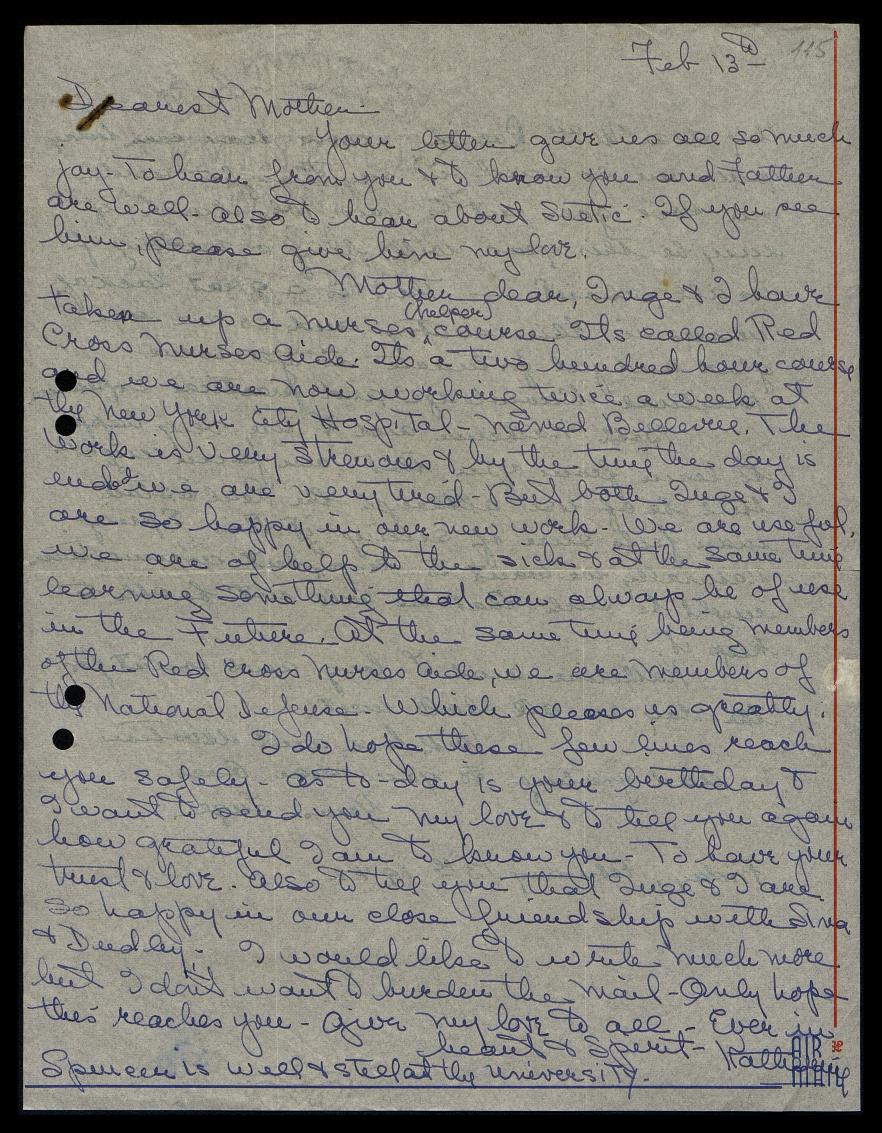 Feb 13th 115
Dearest Mother
Your letter gave us all so much
joy - To hear from you & to know you and Father
are well - also to hear about Suetic. If you see
him, please give him my love.
Mother dear, Inge & I have
taken up a nurses (helper) course Its called Red
Cross Nurses Aide. Its a two hundred hour course
and we are now working twice a week at
the New York City Hospital - named Bellevue. The
work is very strenous & by the time the day is
ended we are very tired - But both Inge & I
are so happy in our new work - We are useful,
we are of help to the sick & at the same time
learning something that can always be of use
in the Future. At the same time being members
of the Red Cross Nurses Aide, we are members of
the National Defense - Which pleases us greatly.
I do hope these few lines reach
you safely - as to-day is your birthday &
I want to send you my love & to tell you again
how grateful I am to know you - To have your
trust & love. Also to tell you that Inge & I are
so happy in our close friendship with
& Dudley. I would like to write much more
but I don't want to burden the mail - Only hope
this reaches you - Give my love to all - Ever in
heart & Spirit - Katherine
Spencer is well & still at the University.
AIR MAIL